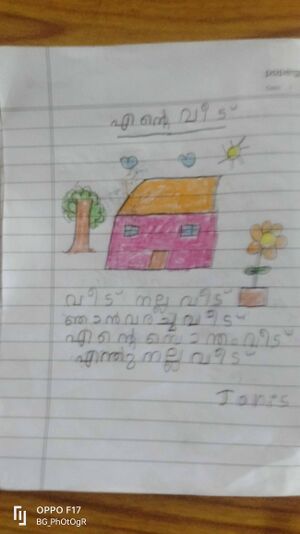 എന്റെ വീട്
വീട് നല്ല വീട്
ഞാൻവരച്ചവീട്
എന്റെ സ്വന്തംവീട്
എന്തു നല്ല വീട്
OPPO F17
BG_PhOtOgR